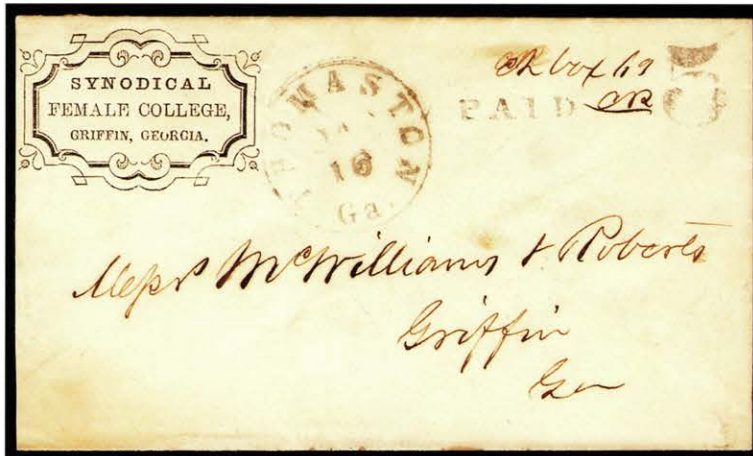 SYNODICAL
FEMALE COLLEGE,
GRIFFIN, GEORGIA.
THOMASTON
16
Ga.
PAID 5
Messrs McWilliams & Roberts
Griffin
Ga